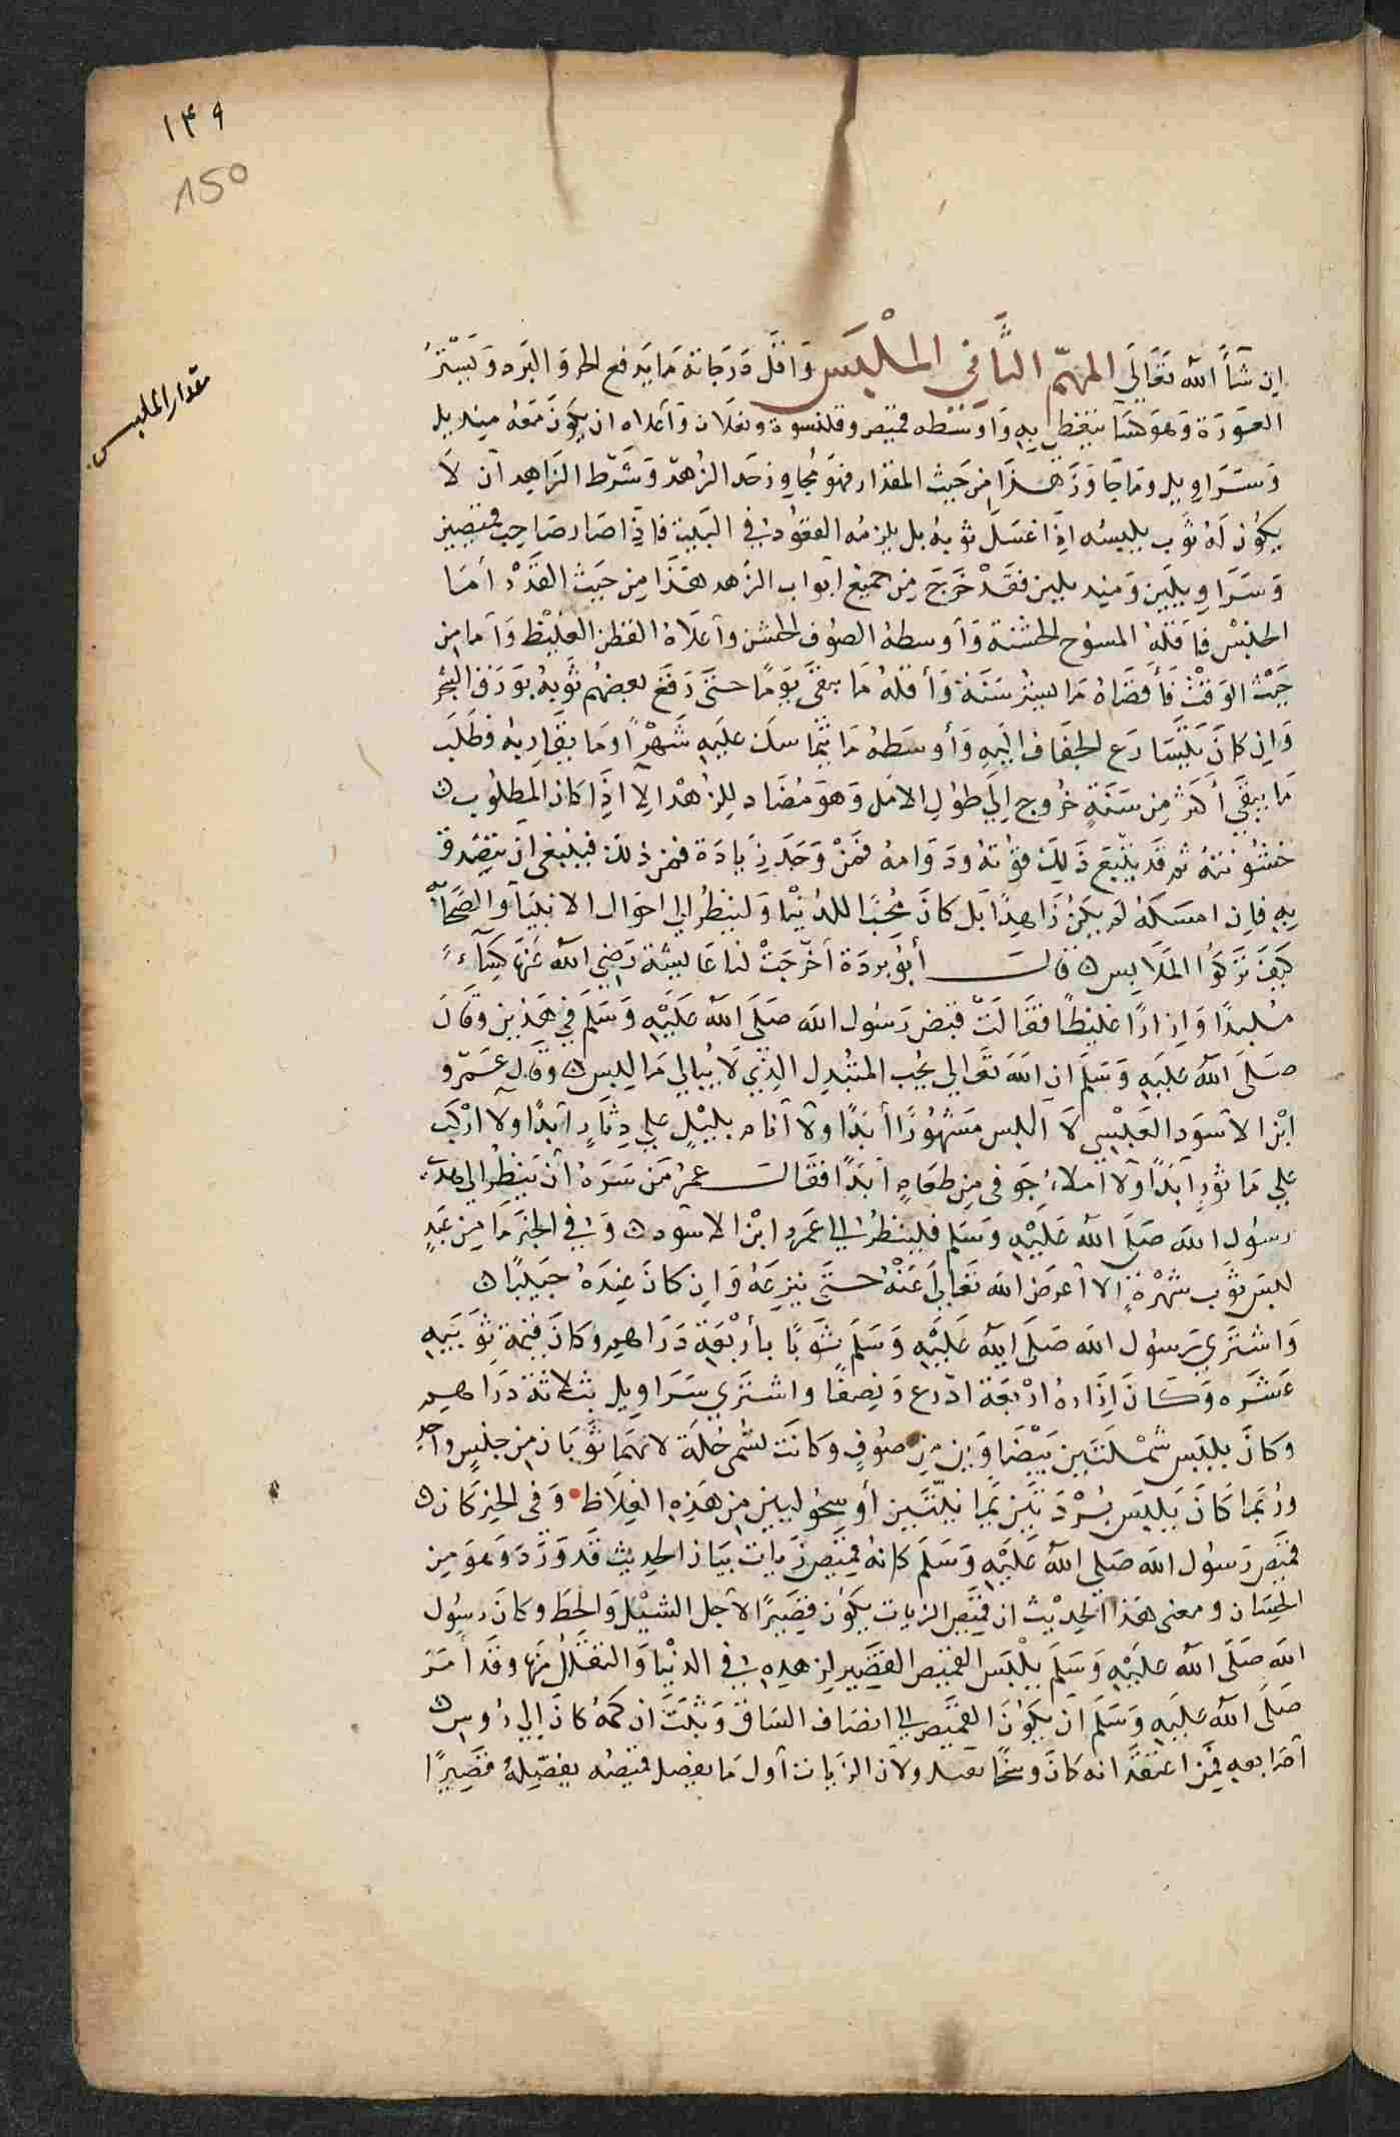 ١٤٩
150
مقدار الملبس
ان شآء الله تعَالَى المهمّ الثَّانِي المَلْبَس وَاقلّ دَرجاتة مَا يَدفع الحر وَ البَرد وَ يَسْترُ
العَورَة وَهو كسَآ يتغطى بِهِ وَاوسْطه قميص وقلنسوة ونعلَان وَأعلاه ان يكون مَعَه منديل
وَسَرَاوِيل ومَا جَاوَزَ هَذَا مِن حَيث المقدار فهوَ مُجاوِز حَد الزهد وَشَرط الزَاهِد آن لَا
يكوُن لَهُ ثَوب يلبسُه اذِا غسَلَ ثوبهُ بل يلزمُه القعُود في البَيت فاذِا صَار صَاحِب قميصين
وَسَرَاوِيلَين وَمنديلين فقَدْ خَرَجَ مِن جميع ابواب الزهد هَذَا مِن حَيث القَدْر أمَا
الجنسْ فَاقلهُ المسوُح الخشنة وَأوسطهُ الصوُف الخشن وآعلَاهُ القطن الغليْظ وَآما مِن
حَيْث الوَقتْ فَأقصَاهُ مَا يستُر سَنَة وَأقلهُ مَا يبقى يَومًا حتى رَقع بعضهُم ثَوبهُ بوَرَق الشجر
وَاِن كانَ يَتَسَارَع الجفَاف اليَهِ وَأوسَطهُ مَا يَتماسَك عَليَهِ شَهْرًا وَمَا يقَارِبهُ فطَلَب
مَا يبقَى أكثر مِن سَنَةٍ خرُوج الِى طوُلِ الامَل وَهوَ مُضَاد لِلزهْد الا اذَا كان المطلوُب
خشوُنتهُ ثم قَد يتْبَع ذَلِك قوّته وَدَوَامهُ فمَنْ وَجَدَ زِيَادَة فمن ذلك فينبغى ان يتصَدق
بِهِ فاِن امسَكهُ لم يكنُ زَاهِدًا بَل كانَ مُحِبًا للدُنيْا وَلينظرُ الى احوَال الانبيَآ وَالصَحَابه
كيَف تركوُا الملَابِس قالَ أبوُ بردَة أخرَجَتْ لنا عَايشَة رَضي الله عَنهَا كِسَآءً
مُلبدًا وَاِزارًا غليظًا فقَالَتْ قبض رَسوُل الله صَلَى الله عَليَهِ وَسَلَم فِي هَذين وقَالَ
صَلَى اللهُ عَليَهِ وَسَلمَ ان الله تعَالي يُحب المتبُدل الذي لَا يُبالي مَا لبس وقال عَمرو
ابْن الاسَود العَبْسِي لَا البس مَشهوُرًا أبَدًا ولا أنام بليْلٍ عَلى دِثارٍ أبَدًا ولا ارْكَب
عَلى مَاثورٍ آبَدًا ولا آملاءُ جَوفى مِن طعَامٍ ابَدًا فقَالَ عمَرُ مَن سَرهُ آن يَنظرَ الى هَدي
رسوُل الله صَلى اللهُ عَليَهِ وَسَلم فلينظرْ الى عَمرو ابْن الاسَود وَ في الخبَر مَا مِن عَبدٍ
لبَس ثوَب شهْرةٍ الا أعرَض الله تعَالى عَنْهُ حَتَى ينزعَهُ وَ ان كانَ عِندَهُ حَبيبًا
وَاشترَي رَسوُل الله صَلَى اللهُ عَليَهِ وَسَلم ثَوبًا بأربعَة دَرَاهِم وكانَ قيمَة ثوَبَيَهِ
عَشرَه وَكَانَ اِزَارهُ ارْبعَة اذرع وَنِصفا واشترَي سَرَاويل بثلاثة دَرَاهِم
وَكانَ يلبَس شمْلتَين بَيْضَاوَين مِن صوُفٍ وَكانت تسُمى حُلة لانهمَا ثوَبَان مِن جنسٍ واحِدٍ
ورُبمَا كانَ يَلبسَ بُرْدَتين يمَانيّتين أو سحوُليين مِن هَذِهِ الغِلَاظ وَفي الخبر كان
قميَص رَسوُل الله صَلى اللهُ عَليَهِ وَسَلمَ كانهُ قميِص زيات بيَان الحدِيث قد وَرَدَ وَهوَ مِن
الحِسَان ومعنى هَذا الحدِيْث ان قميص الزيات يكوُن قصَيرًا لآجل الشيْل وَالحط وكانَ رسوُل
الله صَلى اللهُ عَليَهِ وَسَلمَ يلبَس القميص القصَير لزهدِهِ في الدنيْا وَالتقلل منهَا وقَد أمَرَ
صَلَى اللهُ عَليَهِ وَسَلَم ان يكوُنَ القميَص الى انصَاف السَاق وَثبَتَ ان كمهُ كان إلى رُوسِ
آصَابعهِ فمَن اعتقدَ انه كانَ وسخًا ولان الزيات آول مَا يفصل قميصُه يفصّلهُ قصِيرًا